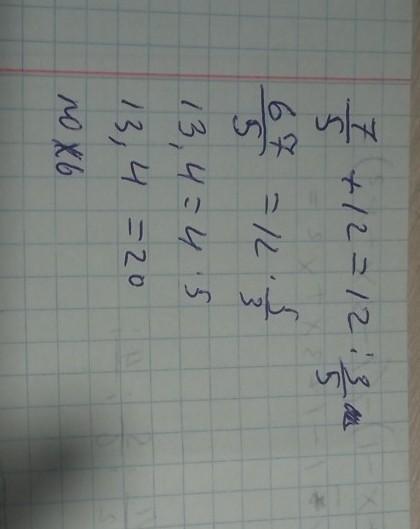 7/5 + 12 = 12 : 3/5
67/5 = 12 · 5/3
13,4 = 4 · 5
13,4 = 20